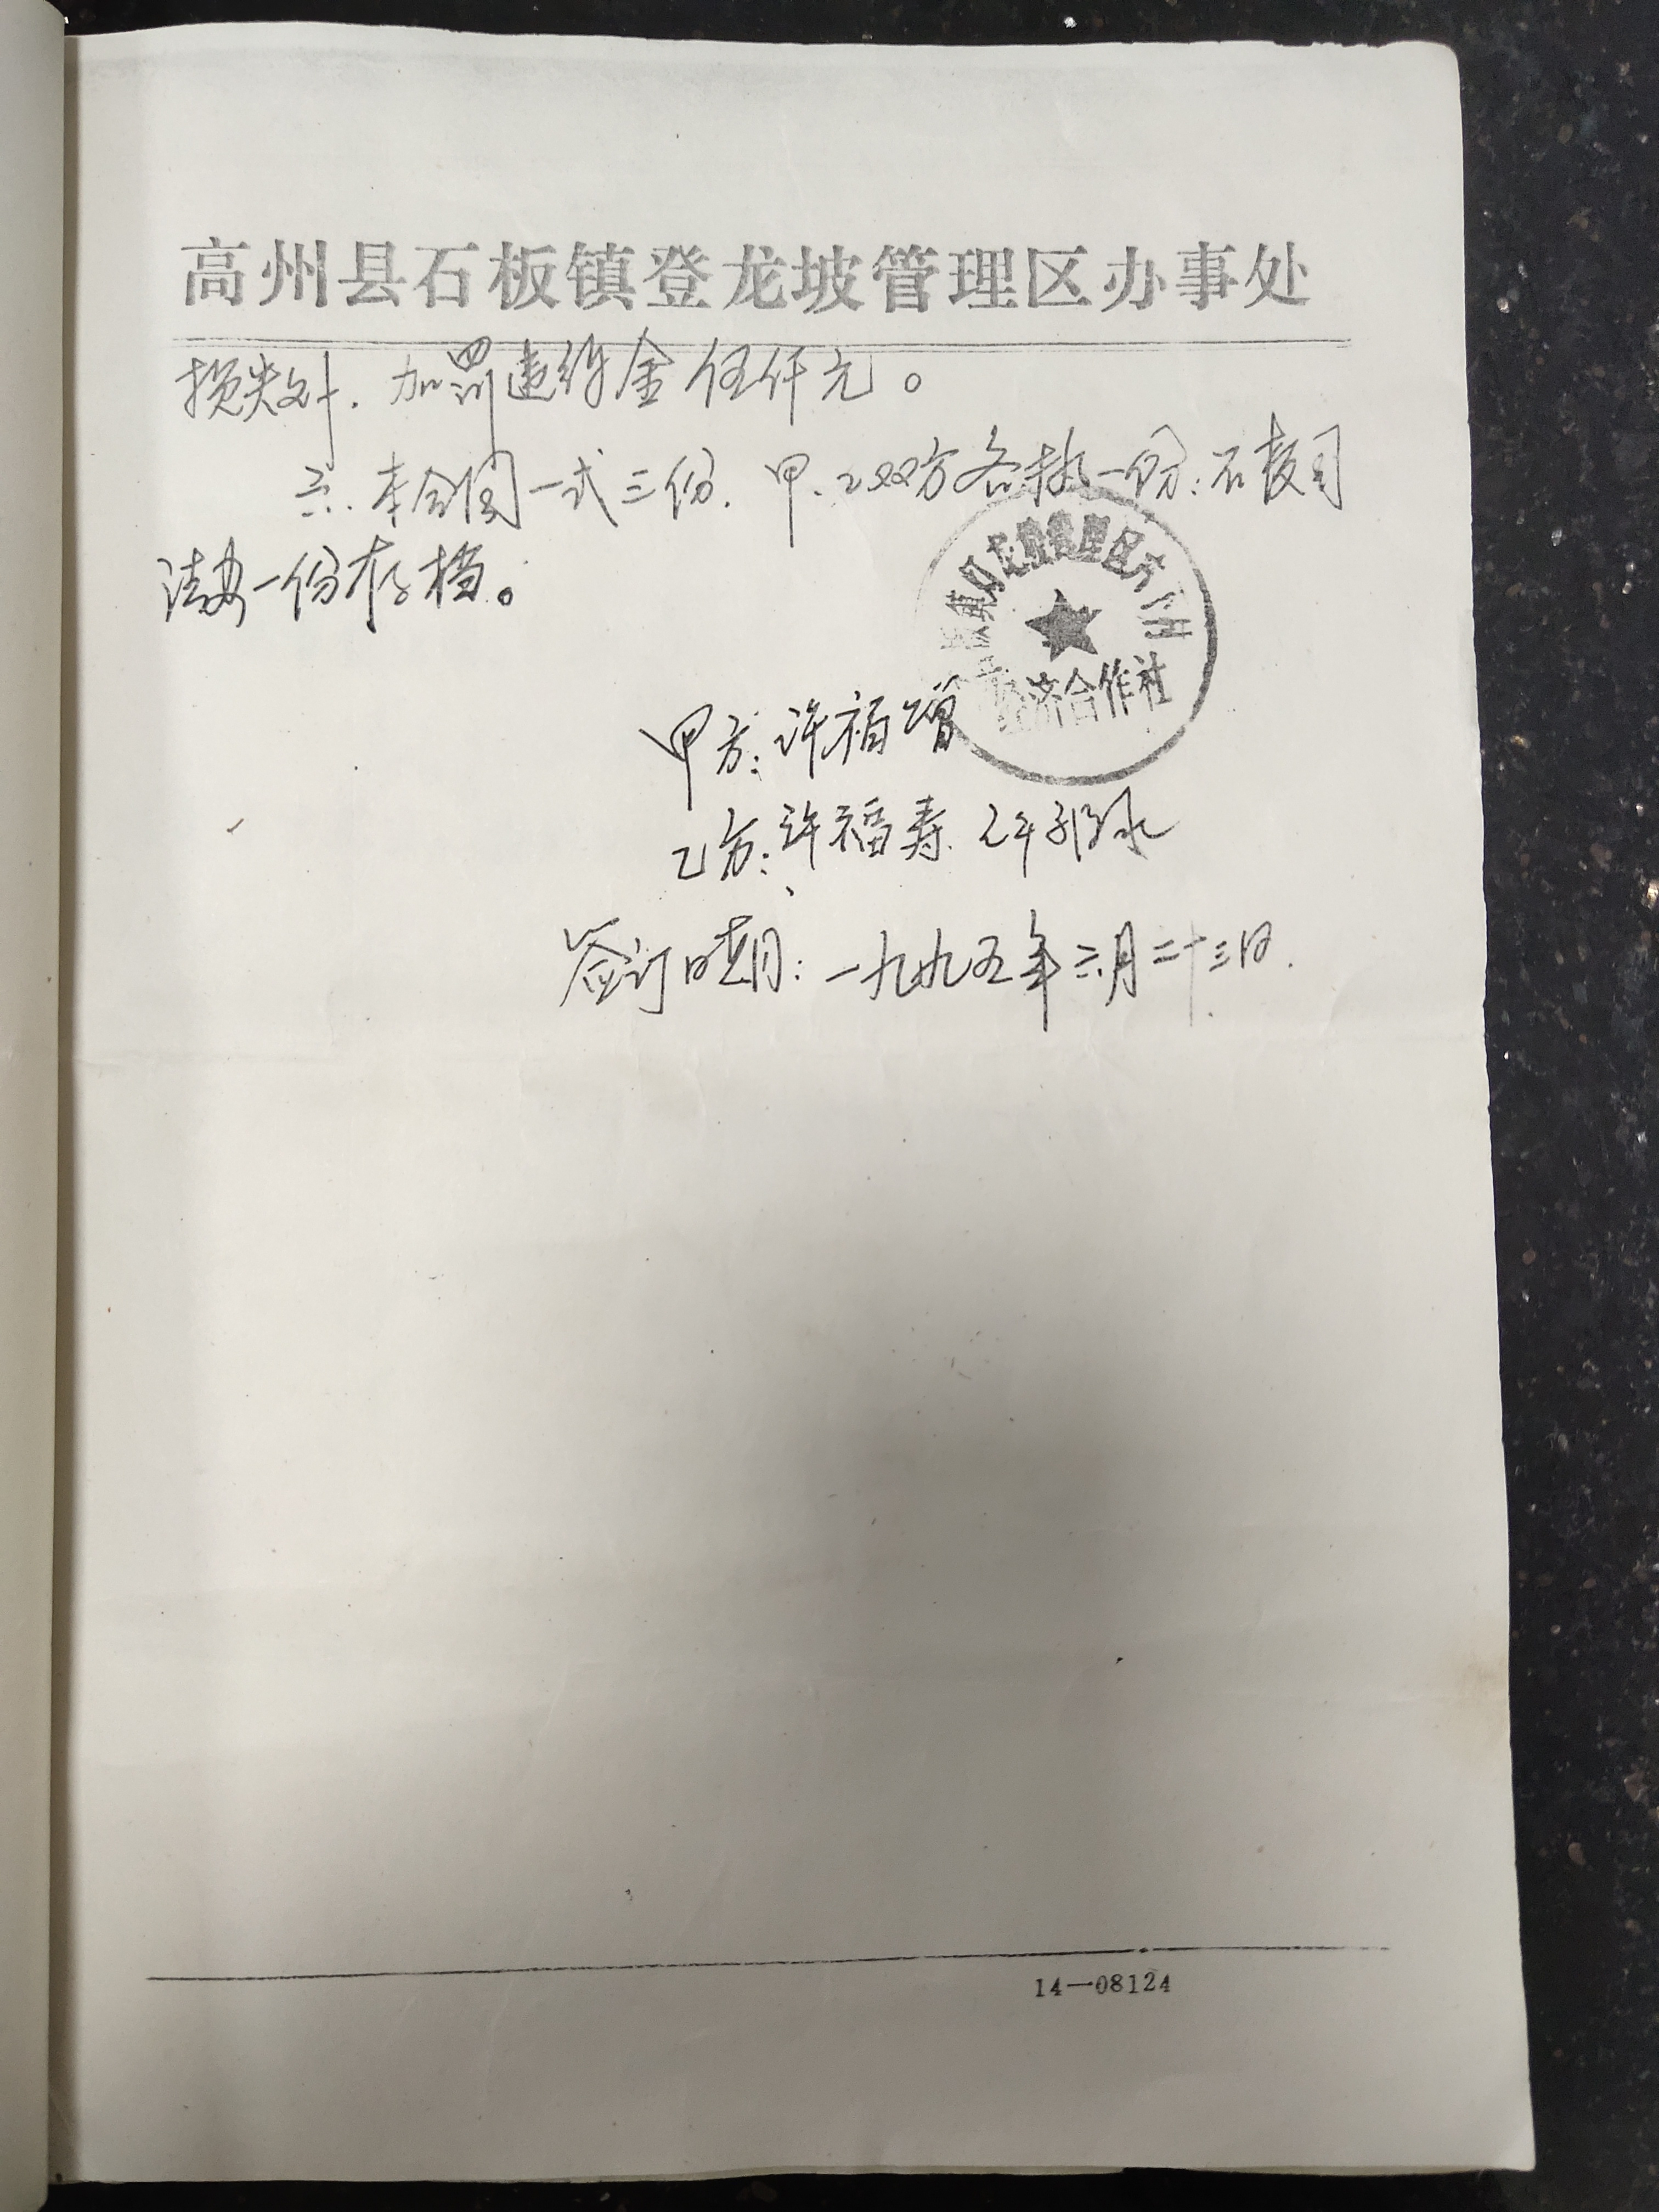 高州县石板镇登龙坡管理区办事处
损失外.加罚违约金伍仟元。
六.本合同一式三份.甲.乙双方各执一份;石板司
法办一份存档。
龙坡管理区
经济合作社
甲方:许福增
乙方:许福寿 许
签订时间:一九九五年六月二十三日.
14—08124